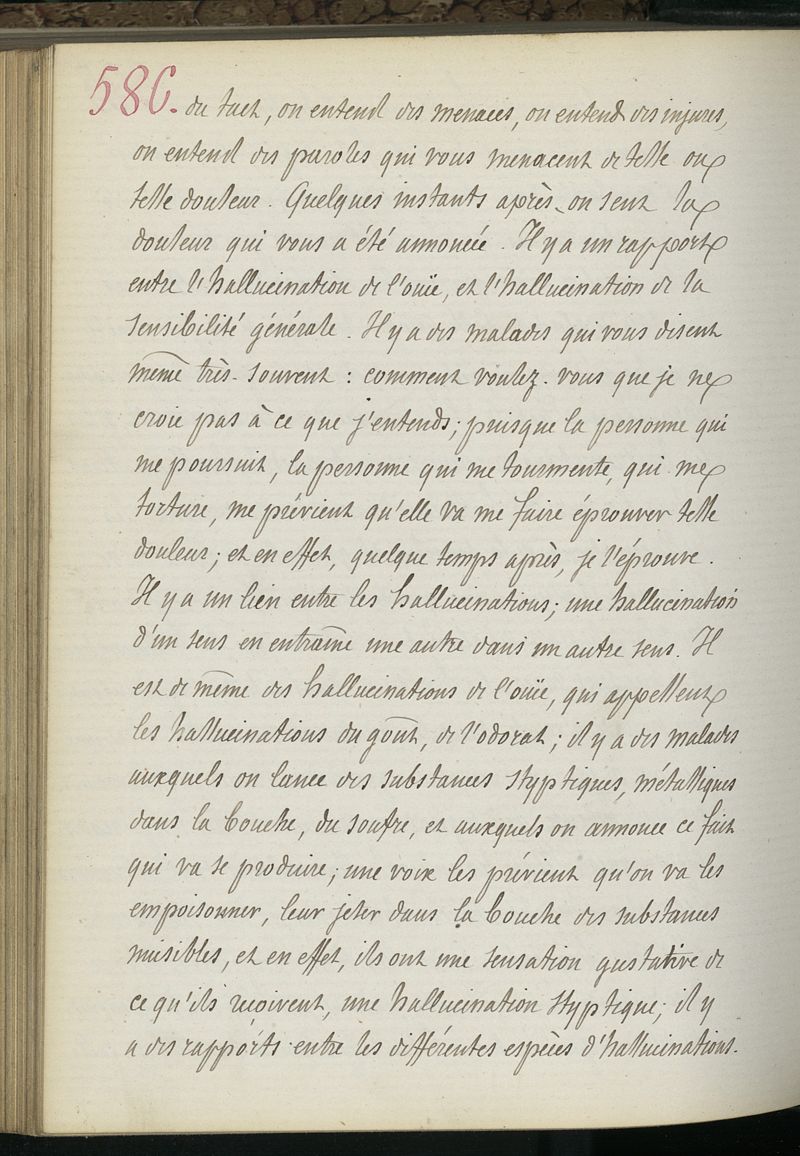 586. du tact, on entend des menaces, on entend des injures,
on entend des paroles qui vous menacent de telle ou
telle douleur. Quelques instants après, on sent la
douleur qui vous a été annoncée. Il y a un rapport
entre l'hallucination de l'ouïe, et l'hallucination de la
sensibilité générale. Il y a des malades qui vous disent
même très-souvent : comment voulez-vous que je ne
croie pas à ce que j'entends; puisque la personne qui
me poursuit, la personne qui me tourmente, qui me
torture, me prévient qu'elle va me faire éprouver telle
douleur; et en effet, quelque temps après, je l'éprouve.
Il y a un lien entre les hallucinations; une hallucination
d'un sens en entraîne une autre dans un autre sens. Il
est de même des hallucinations de l'ouïe, qui appellent
les hallucinations du goût, de l'odorat; il y a des malades
auxquels on lance des substances styptiques, métalliques
dans la bouche, du soufre, et auxquels on annonce ce fait
qui va se produire; une voix les prévient qu'on va les
empoisonner, leur jeter dans la bouche des substances
nuisibles, et en effet, ils ont une sensation gustative de
ce qu'ils reçoivent, une hallucination styptique; il y
a des rapports entre les différentes espèces d'hallucinations.